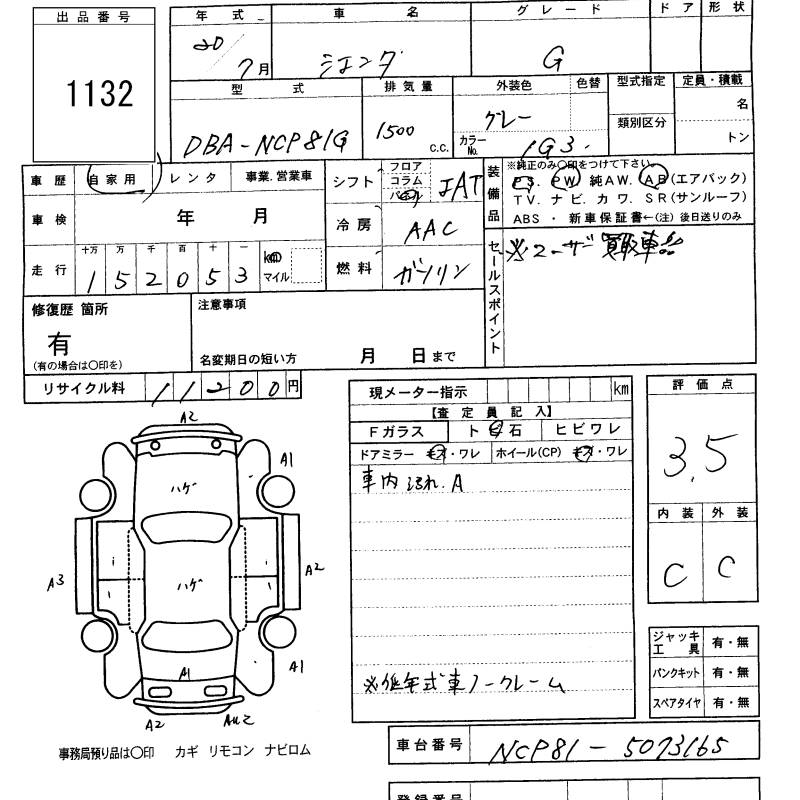 出品番号 年式 車名 グレード ドア 形状
1132 20/7月 シエンタ G
型式 排気量 外装色 色替 型式指定 定員・積載
DBA-NCP81G 1500 c.c. グレー カラーNo. 1G3. 類別区分 名 トン
車歴 自家用 レンタ 事業.営業車 シフト フロア コラム パネル IAT 装備品 ※純正のみ○印をつけて下さい。
PS. PW 純AW. AB(エアバック)
TV. ナビ. カワ. SR(サンルーフ)
ABS ・ 新車保証書←(注) 後日送りのみ
車検 年 月 冷房 AAC
走行 十万 万 千 百 十 一 km マイル 燃料 ガソリン
152053
セールスポイント ※ユーザー買取車!!
修復歴 箇所 注意事項
有
(有の場合は○印を) 名変期日の短い方 月 日まで
リサイクル料 11200円
現メーター指示 km 評価点
【査定員記入】 3.5
Fガラス ト 石 ヒビワレ
ドアミラー キズ・ワレ ホイール(CP) キズ・ワレ
車内汚れ.A
内装 外装
C C
A2
A1
ハゲ
A3 ハゲ A2
A1
A1
A2 AU2
※低年式車ノークレーム
ジャッキ工具 有・無
パンクキット 有・無
スペアタイヤ 有・無
事務局預り品は○印 カギ リモコン ナビロム
車台番号 NCP81-5073165
登録番号